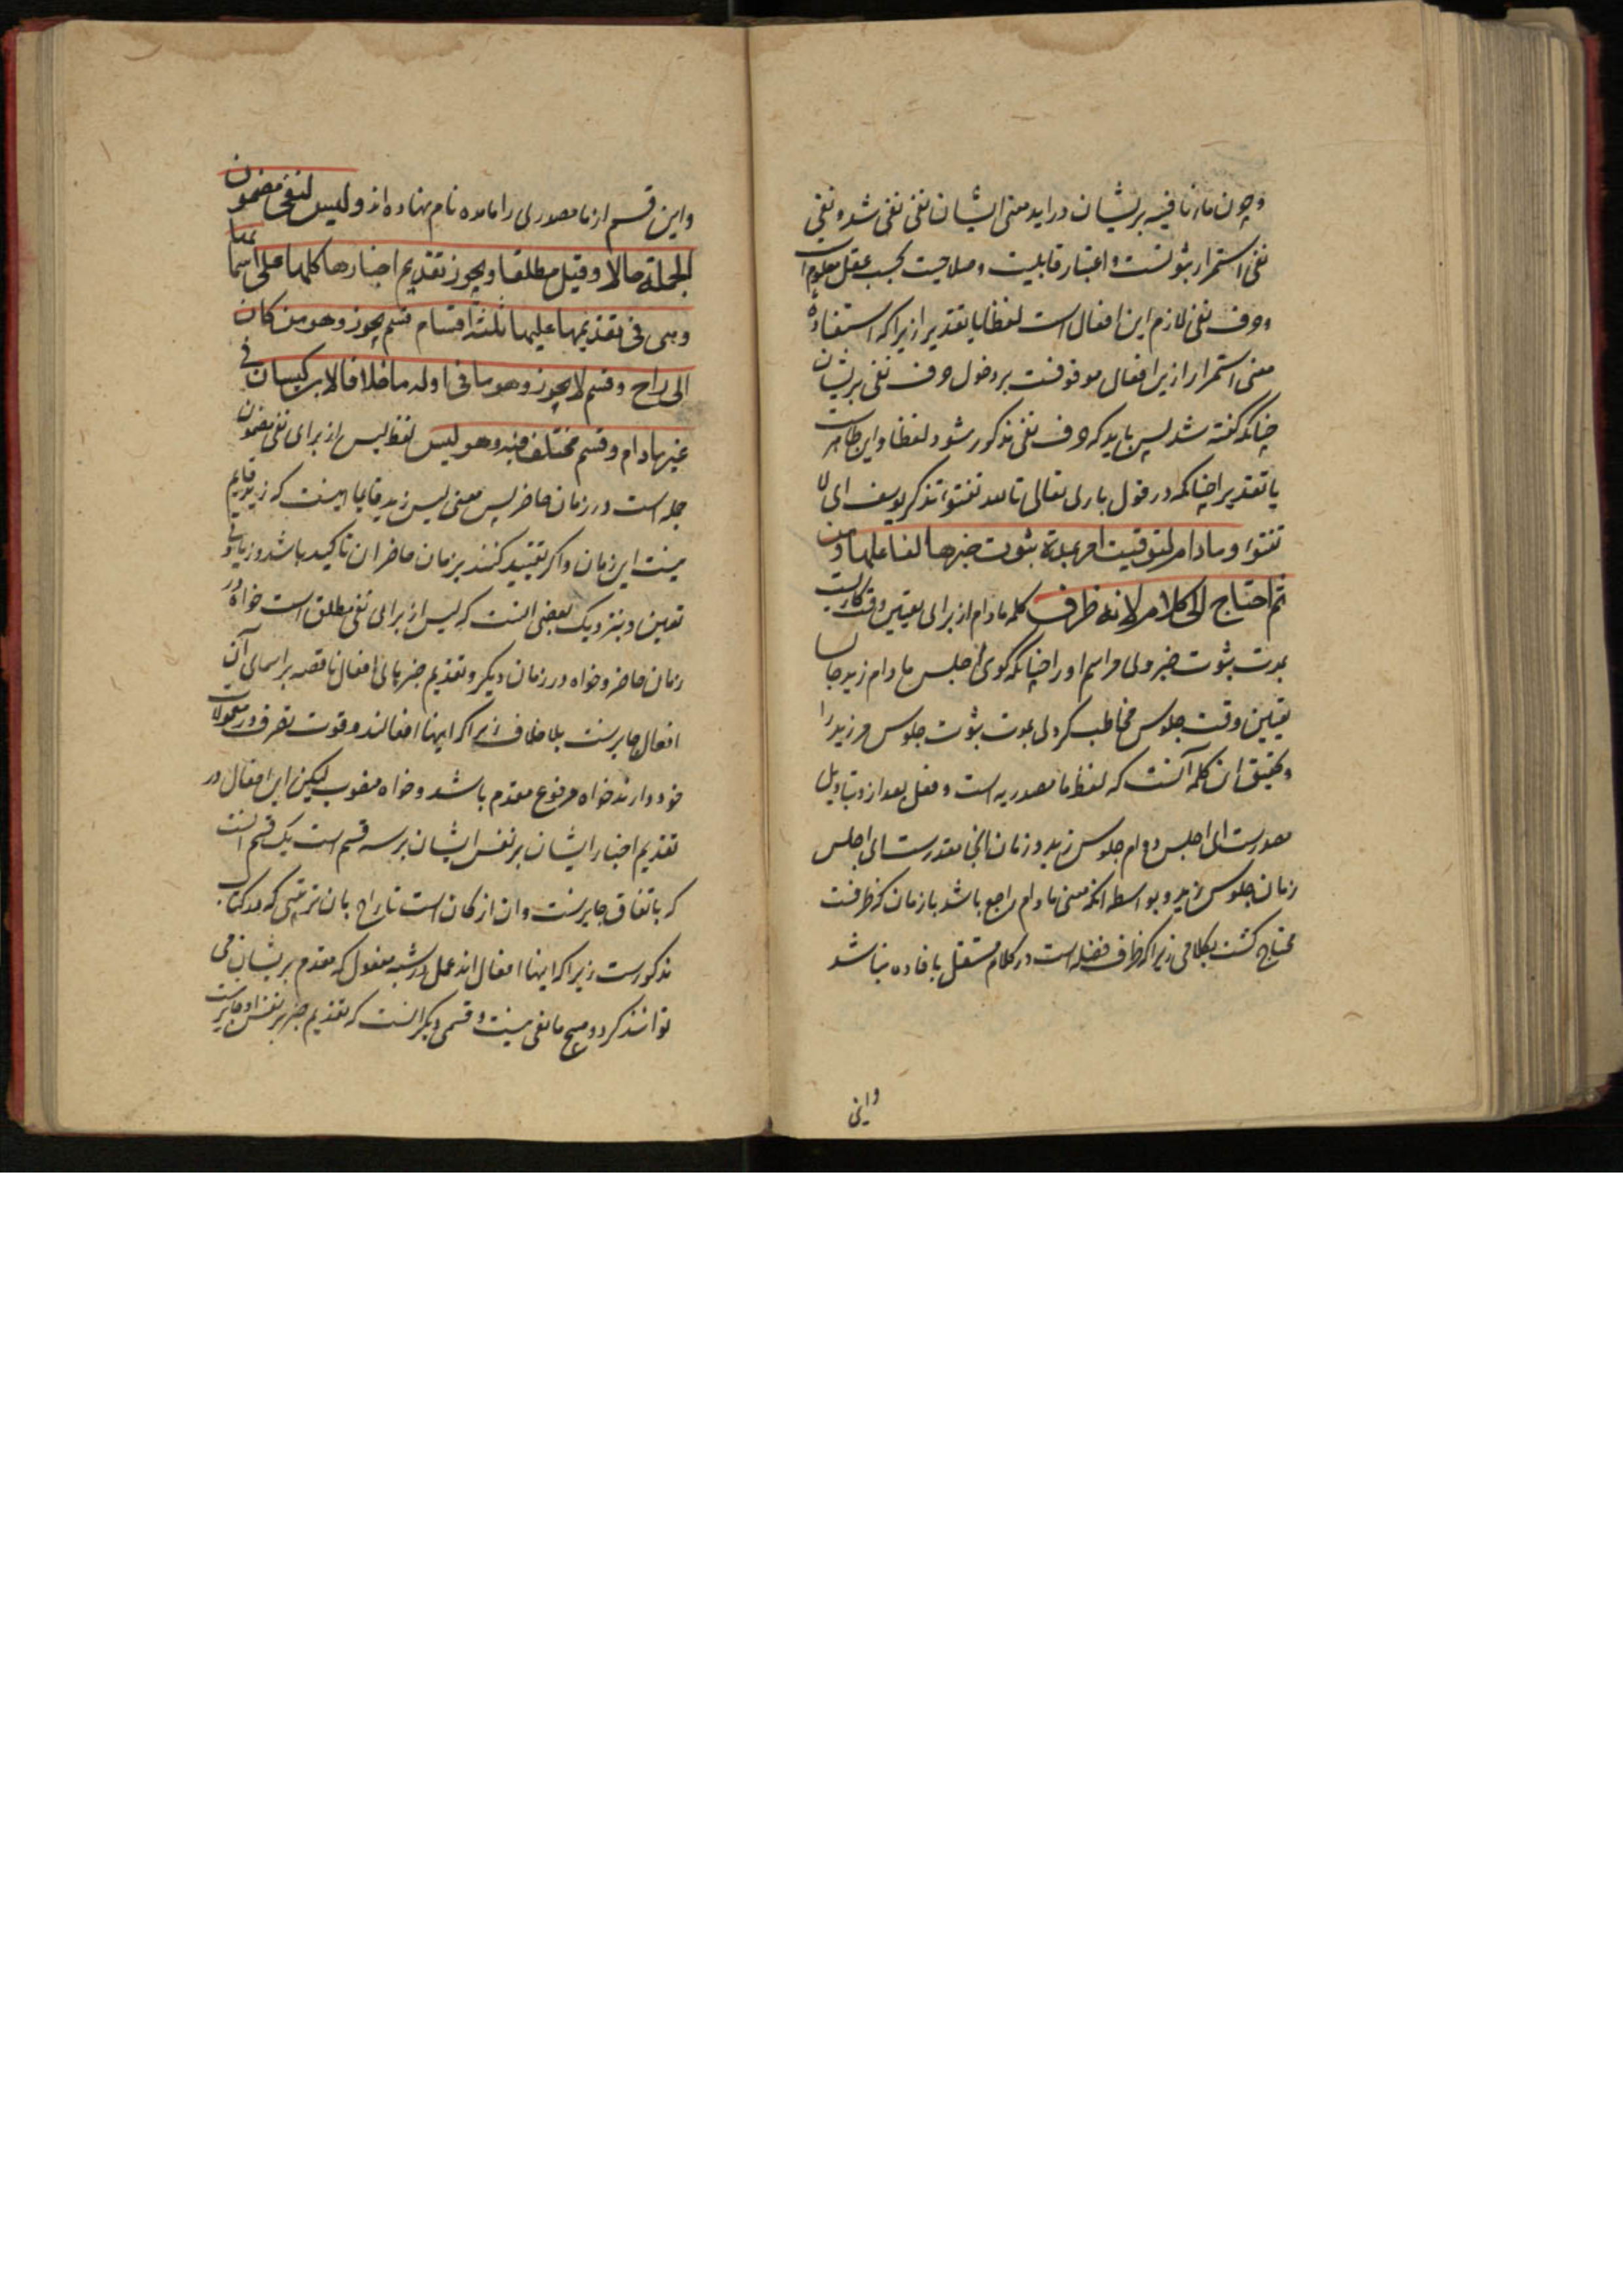 و چون ما نافیه بریشان دراید معنی ایشان نفی نفی شد و نفی
نفی استمرار ثبوتست و اعتبار قابلیت و صلاحیت بحسب عقل معلوم است
و حرف نفی لازم این افعال است لفظا یا تقدیرا زیرا که استفاده
معنی استمرار ازین افعال موقوفست بر دخول حرف نفی بریشان
چنانکه گفته شد پس باید که حرف نفی مذکور شود لفظا و این ظاهرست
یا تقدیرا چنانکه در قول باری تعالی تالله تفتؤا تذکر یوسف ای لا
تفتؤا وما دام لتوقیت امر بمدة ثبوت خبرها لفاعلها ومن
ثم احتاج الی کلام لانه ظرف کلمه مادام از برای تعیین وقت کاریست
بمدت ثبوت خبر وی مر اسم او را چنانکه گوی اجلس ما دام زید جالسا
تعیین وقت جلوس مخاطب کردی بمدت ثبوت جلوس مر زید را
و تحقیق این کلمه آنست که لفظ ما مصدریه است و فعل بعد ازو بتاویل
مصدرست ای اجلس دوام جلوس زید و زمان اینجا مقدرست ای اجلس
زمان جلوس زید و بواسطه آنکه معنی مادام راجع باشد بازمان که ظرفست
محتاج گشت بکلامی زیرا که ظرف فضله است در کلام مستقل بافاده نباشد
و این
و این قسم از ما مصدری را ما مده نام نهاده اند ولیس لنفی مضمون
الجملة حالا وقیل مطلقا ویجوز تقدیم اخبارها کلها علی اسمائها
وهی فی تقدیمها علیها ثلثة اقسام قسم یجوز وهو من کان
الی راح وقسم لا یجوز وهو ما فی اوله ما خلافا لابن کیسان فی
غیر مادام وقسم مختلف فیه وهو لیس لفظ لیس از برای نفی مضمون
جمله است در زمان حاضر پس معنی لیس زید قایما اینست که زید قایم
نیست این زمان و اگر تقیید کنند بزمان حاضر ان تاکید باشد و زیادتی
تعیین و نزدیک بعضی انست که لیس از برای نفی مطلق است خواه در
زمان حاضر و خواه در زمان دیگر و تقدیم خبرهای افعال ناقصه بر اسمای آن
افعال جایزست بلا خلاف زیرا که اینها افعالند و قوت تصرف در معمولات
خود دارند خواه مرفوع مقدم باشد و خواه منصوب لیکن این افعال در
تقدیم اخبار ایشان بر نفس ایشان بر سه قسم است یک قسم انست
که باتفاق جایزست و ان از کان است تا راح بان ترتیبی که در کتاب
مذکورست زیرا که اینها افعال اند عمل در شبه مفعول که مقدم بریشان می
توانند کرد و هیچ مانعی نیست و قسمی دیگر انست که تقدیم خبر بر نفس او جایز نیست